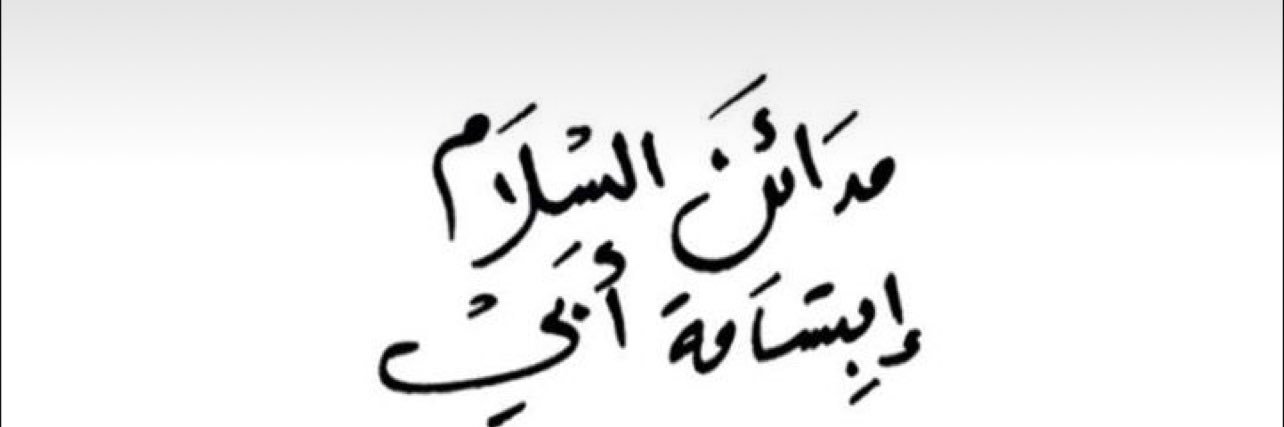 مَدَائنَ السْلَام
إِبتسَامة أَبَيْ